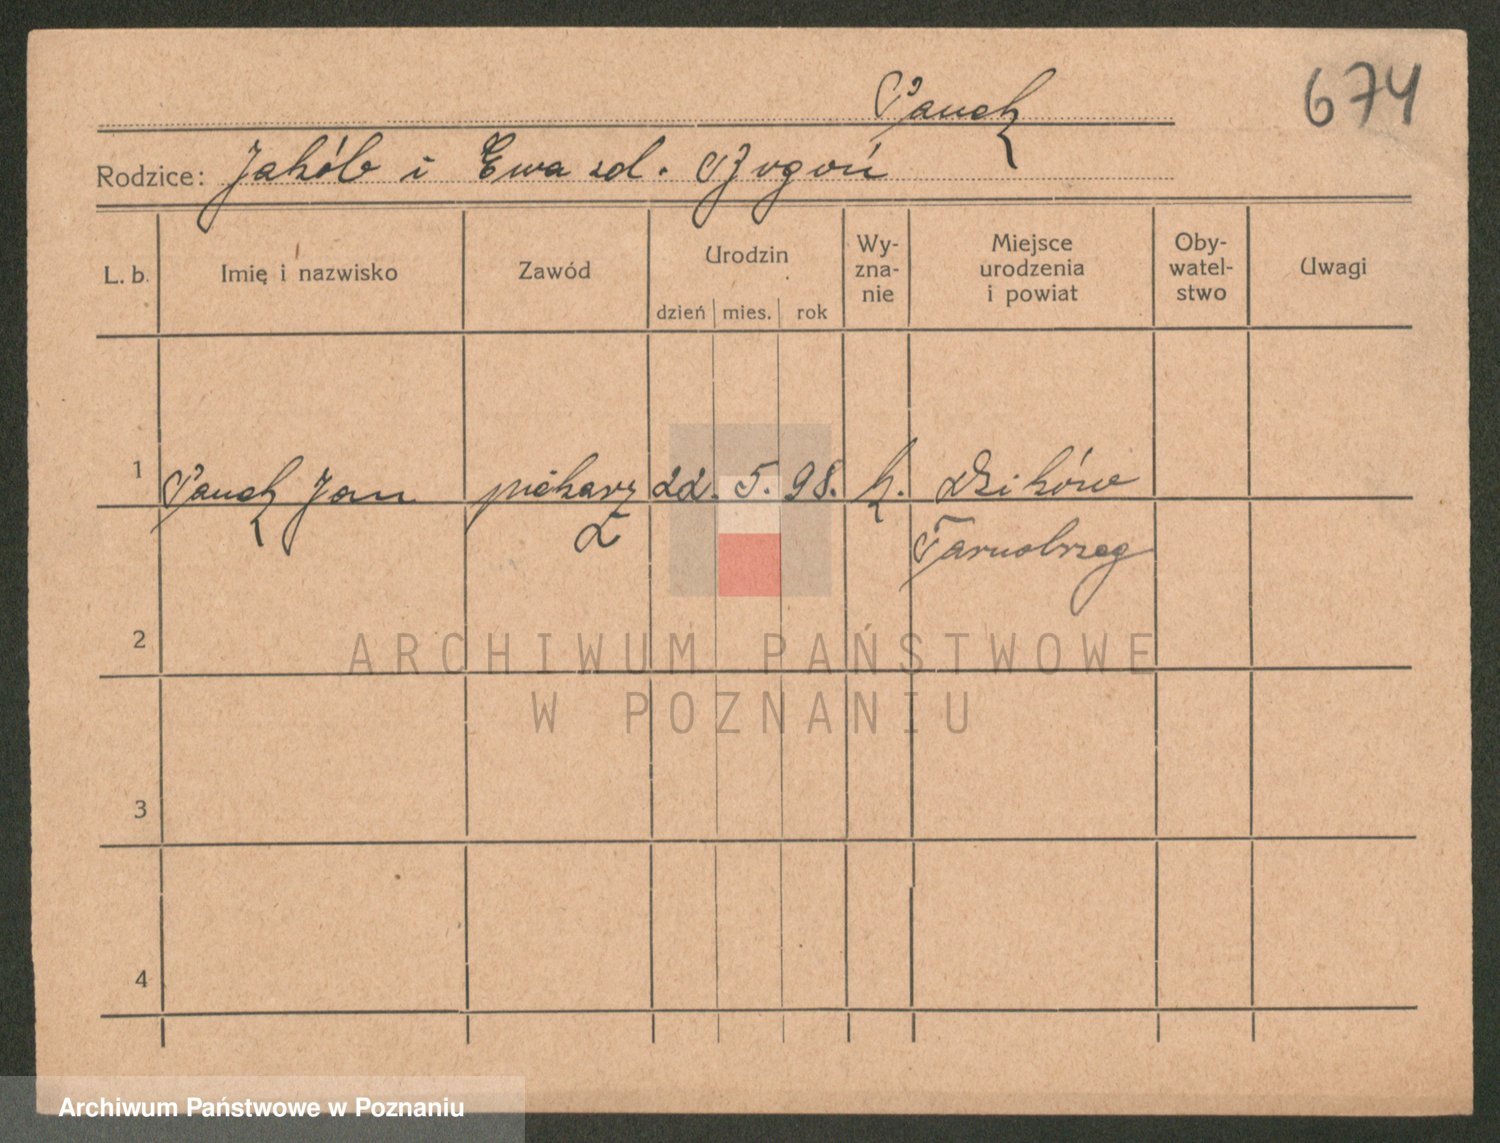 674
Rodzice: Jakób i Ewa zd.
L. b. Imię i nazwisko Zawód Urodzin dzień mies. rok Wy-zna-nie Miejsce urodzenia i powiat Oby-watel-stwo Uwagi
1 Jan piekarz 22. 5. 98. k. Dzików
Tarnobrzeg
2
ARCHIWUM PAŃSTWOWE
W POZNANIU
3
4
Archiwum Państwowe w Poznaniu